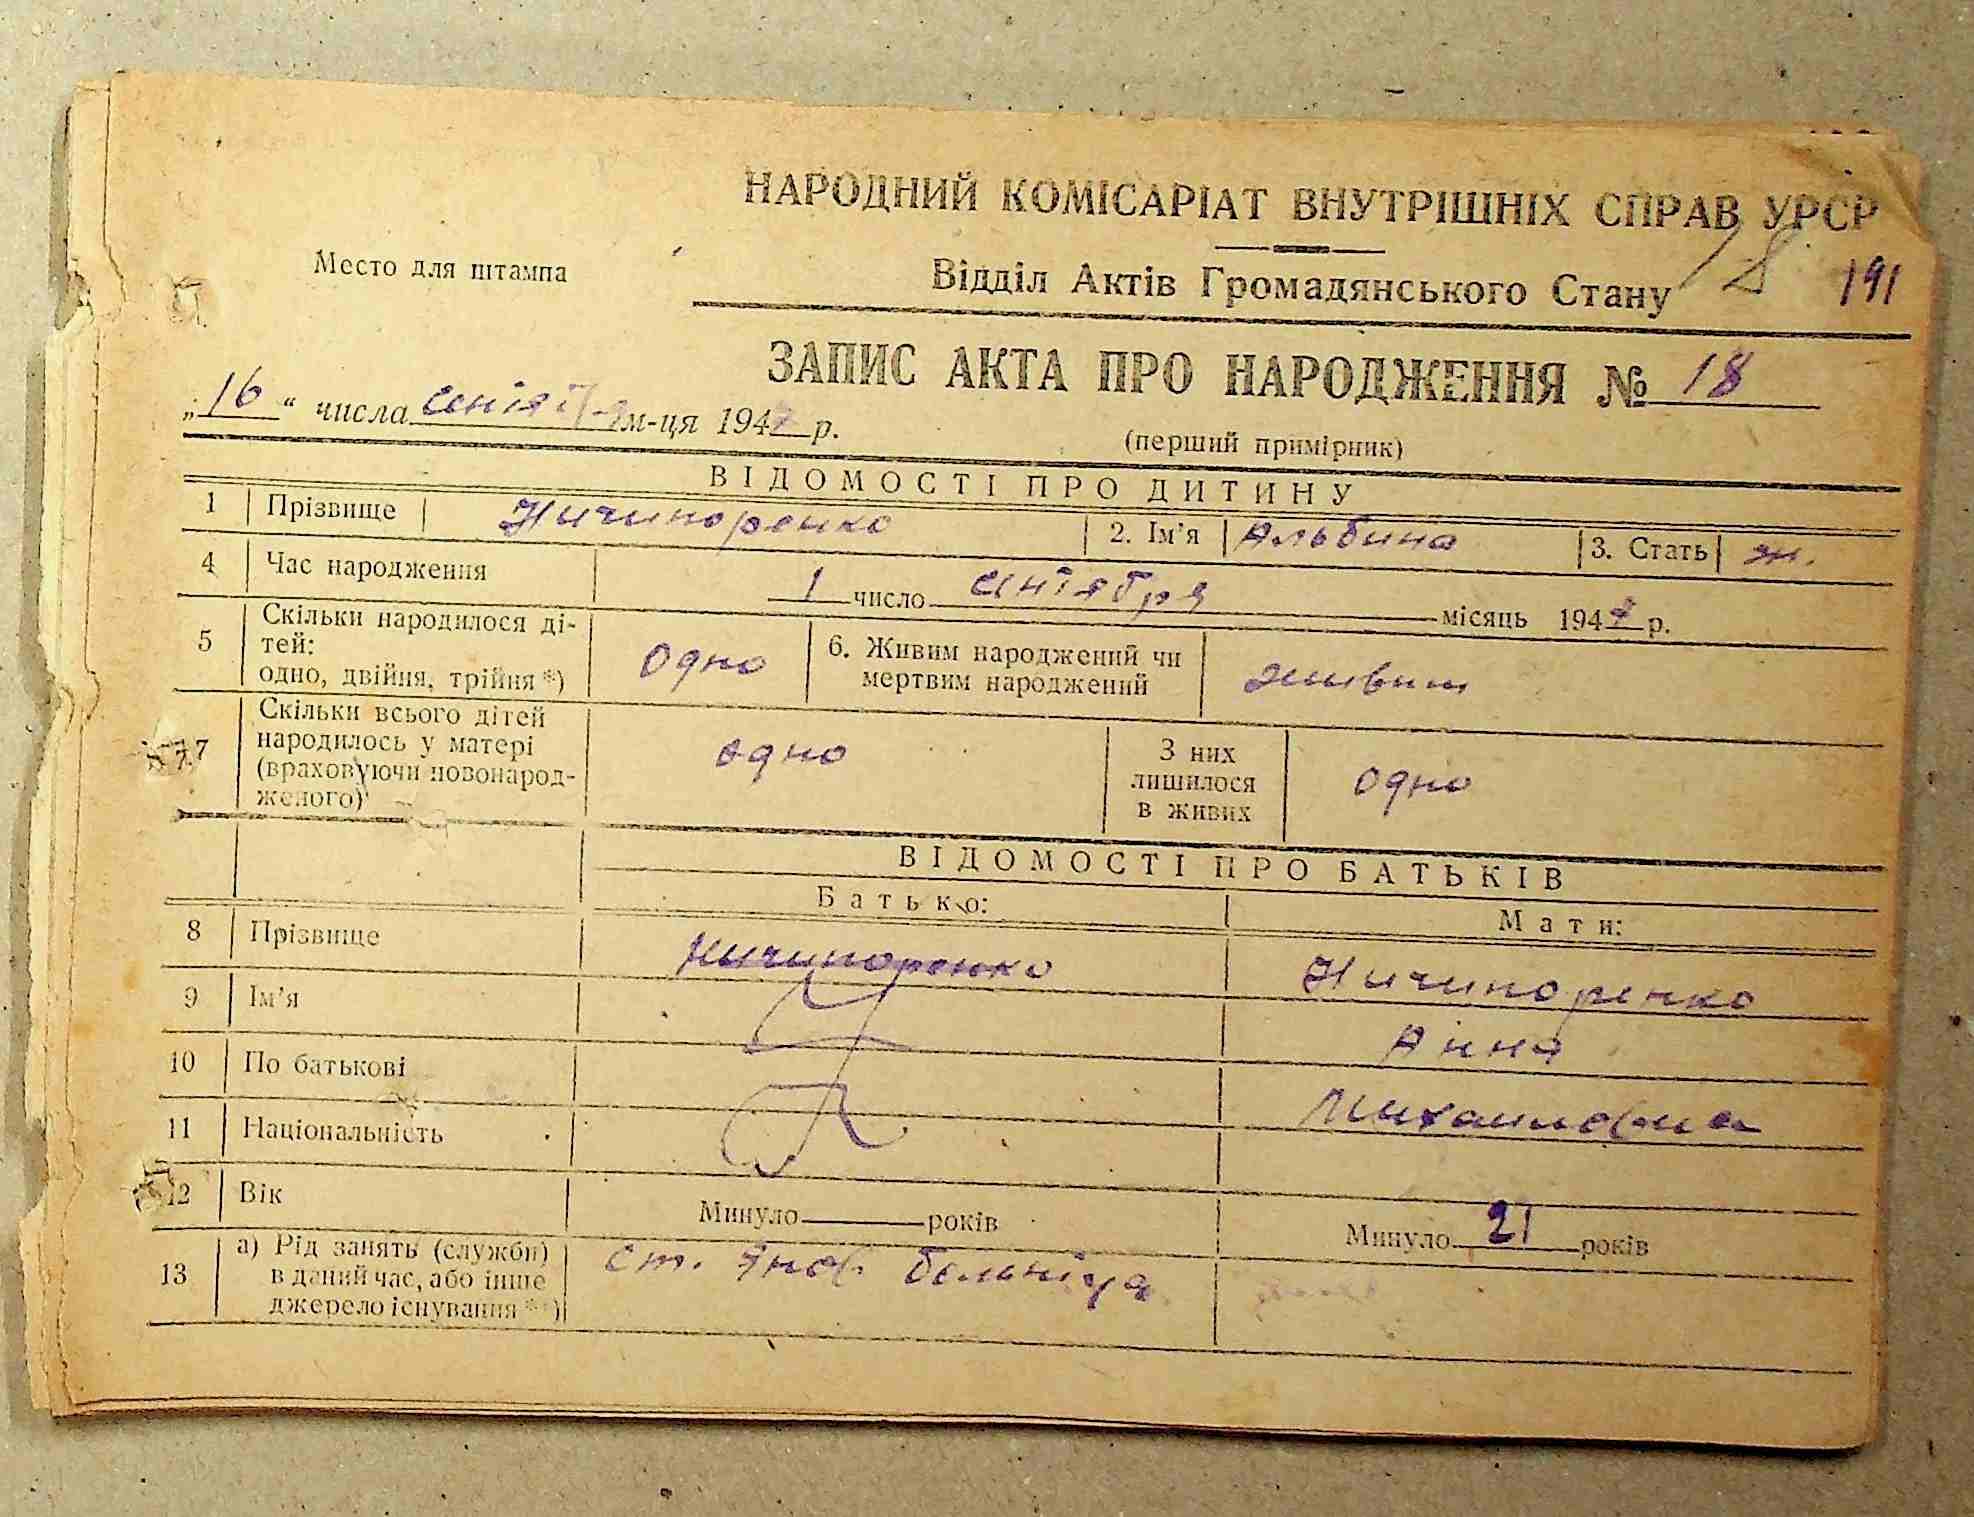 НАРОДНИЙ КОМІСАРІАТ ВНУТРІШНІХ СПРАВ УРСР
Место для штампа
Відділ Актів Громадянського Стану
18 191
ЗАПИС АКТА ПРО НАРОДЖЕННЯ № 18
„16“ числа сентября м-ця 194 р.
(перший примірник)
ВІДОМОСТІ ПРО ДИТИНУ
1 Прізвище Ничипоренко 2. Ім’я Альбина 3. Стать ж.
4 Час народження 1 число сентября місяць 194 р.
5 Скільки народилося ді-
тей:
одно, двійня, трійня *) одно 6. Живим народжений чи
мертвим народжений живым
7 Скільки всього дітей
народилось у матері
(враховуючи новонарод-
женого) одно З них
лишилося
в живих одно
ВІДОМОСТІ ПРО БАТЬКІВ
Батько: Мати:
8 Прізвище Ничипоренко Ничипоренко
9 Ім’я Анна
10 По батькові Михайловна
11 Національність
12 Вік Минуло років Минуло 21 років
13 а) Рід занять (служби)
в даний час, або інше
джерело існування **) ст.